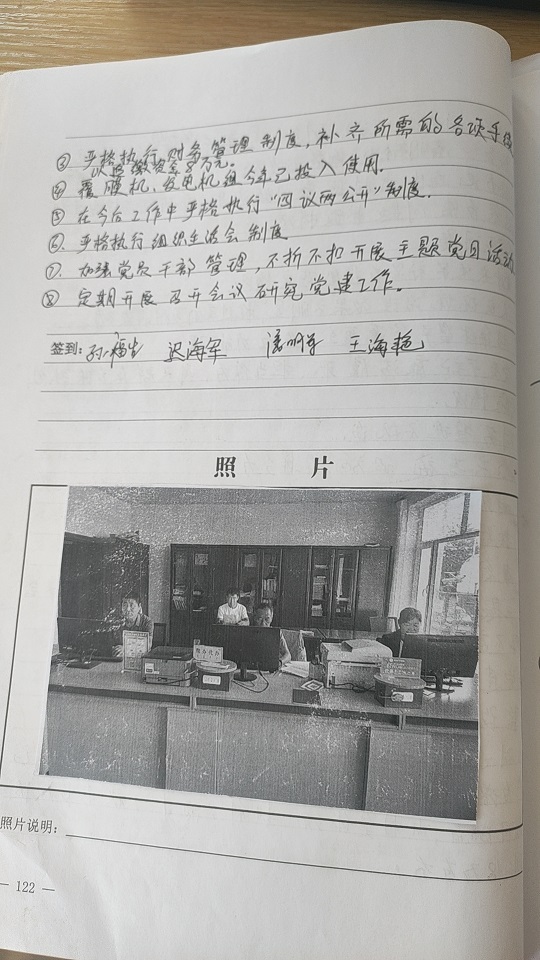 ③ 严格执行财务管理制度,补齐所需的各项手续
以缴资金8万元。
④ 覆膜机、发电机组今年已投入使用.
⑤ 在今后工作中严格执行“四议两公开”制度.
⑥. 严格执行组织生活会制度
⑦. 加强党员干部管理,不折不扣开展主题党日活动
⑧ 定期开展召开会议研究党建工作。
签到: 孙福生 迟海军 王海艳
照 片
照片说明:
— 122 —